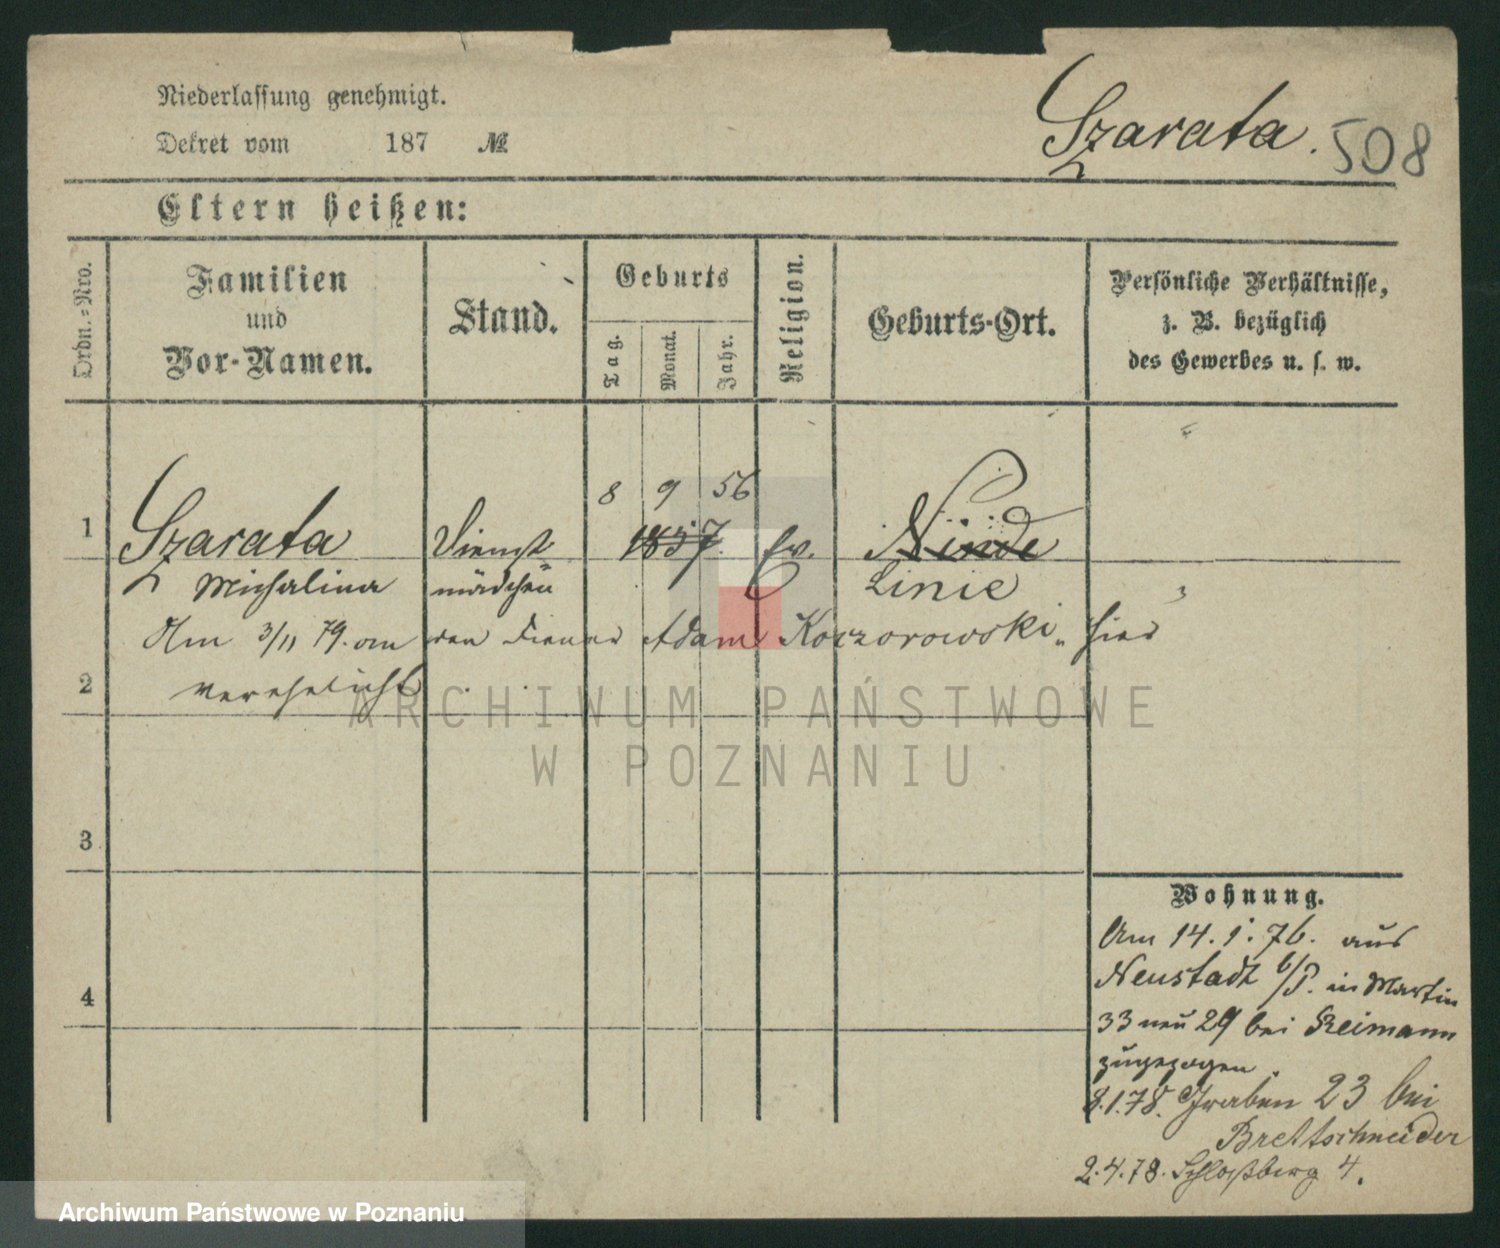 Niederlassung genehmigt.
Dekret vom 187 №
Szarata. 508
Eltern heißen:
Ordn.-Nro.
Familien
und
Vor-Namen.
Stand.
Geburts
Tag.
Monat.
Jahr.
Religion.
Geburts-Ort.
Persönliche Verhältnisse,
z. B. bezüglich
des Gewerbes u. s. w.
8 9 56
1 Szarata Dienst 1857. Ev. Ninde
Michalina mädchen Linie
Am 3/11 79. an den Diener Adam Koczorowski hier
2 verehelicht
3
4
Wohnung.
Am 14.1.76. aus
Neustadt b/P. in Martin
33 neu 29 bei Reimann
zugezogen.
8.1.78. Graben 23 bei
Brettschneider
2.4.78. Schloßberg 4.
ARCHIWUM PAŃSTWOWE
W POZNANIU
Archiwum Państwowe w Poznaniu